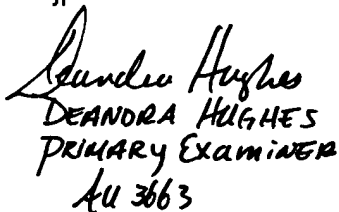 Deandra Hughes
DEANDRA HUGHES
PRIMARY EXAMINER
AU 3663